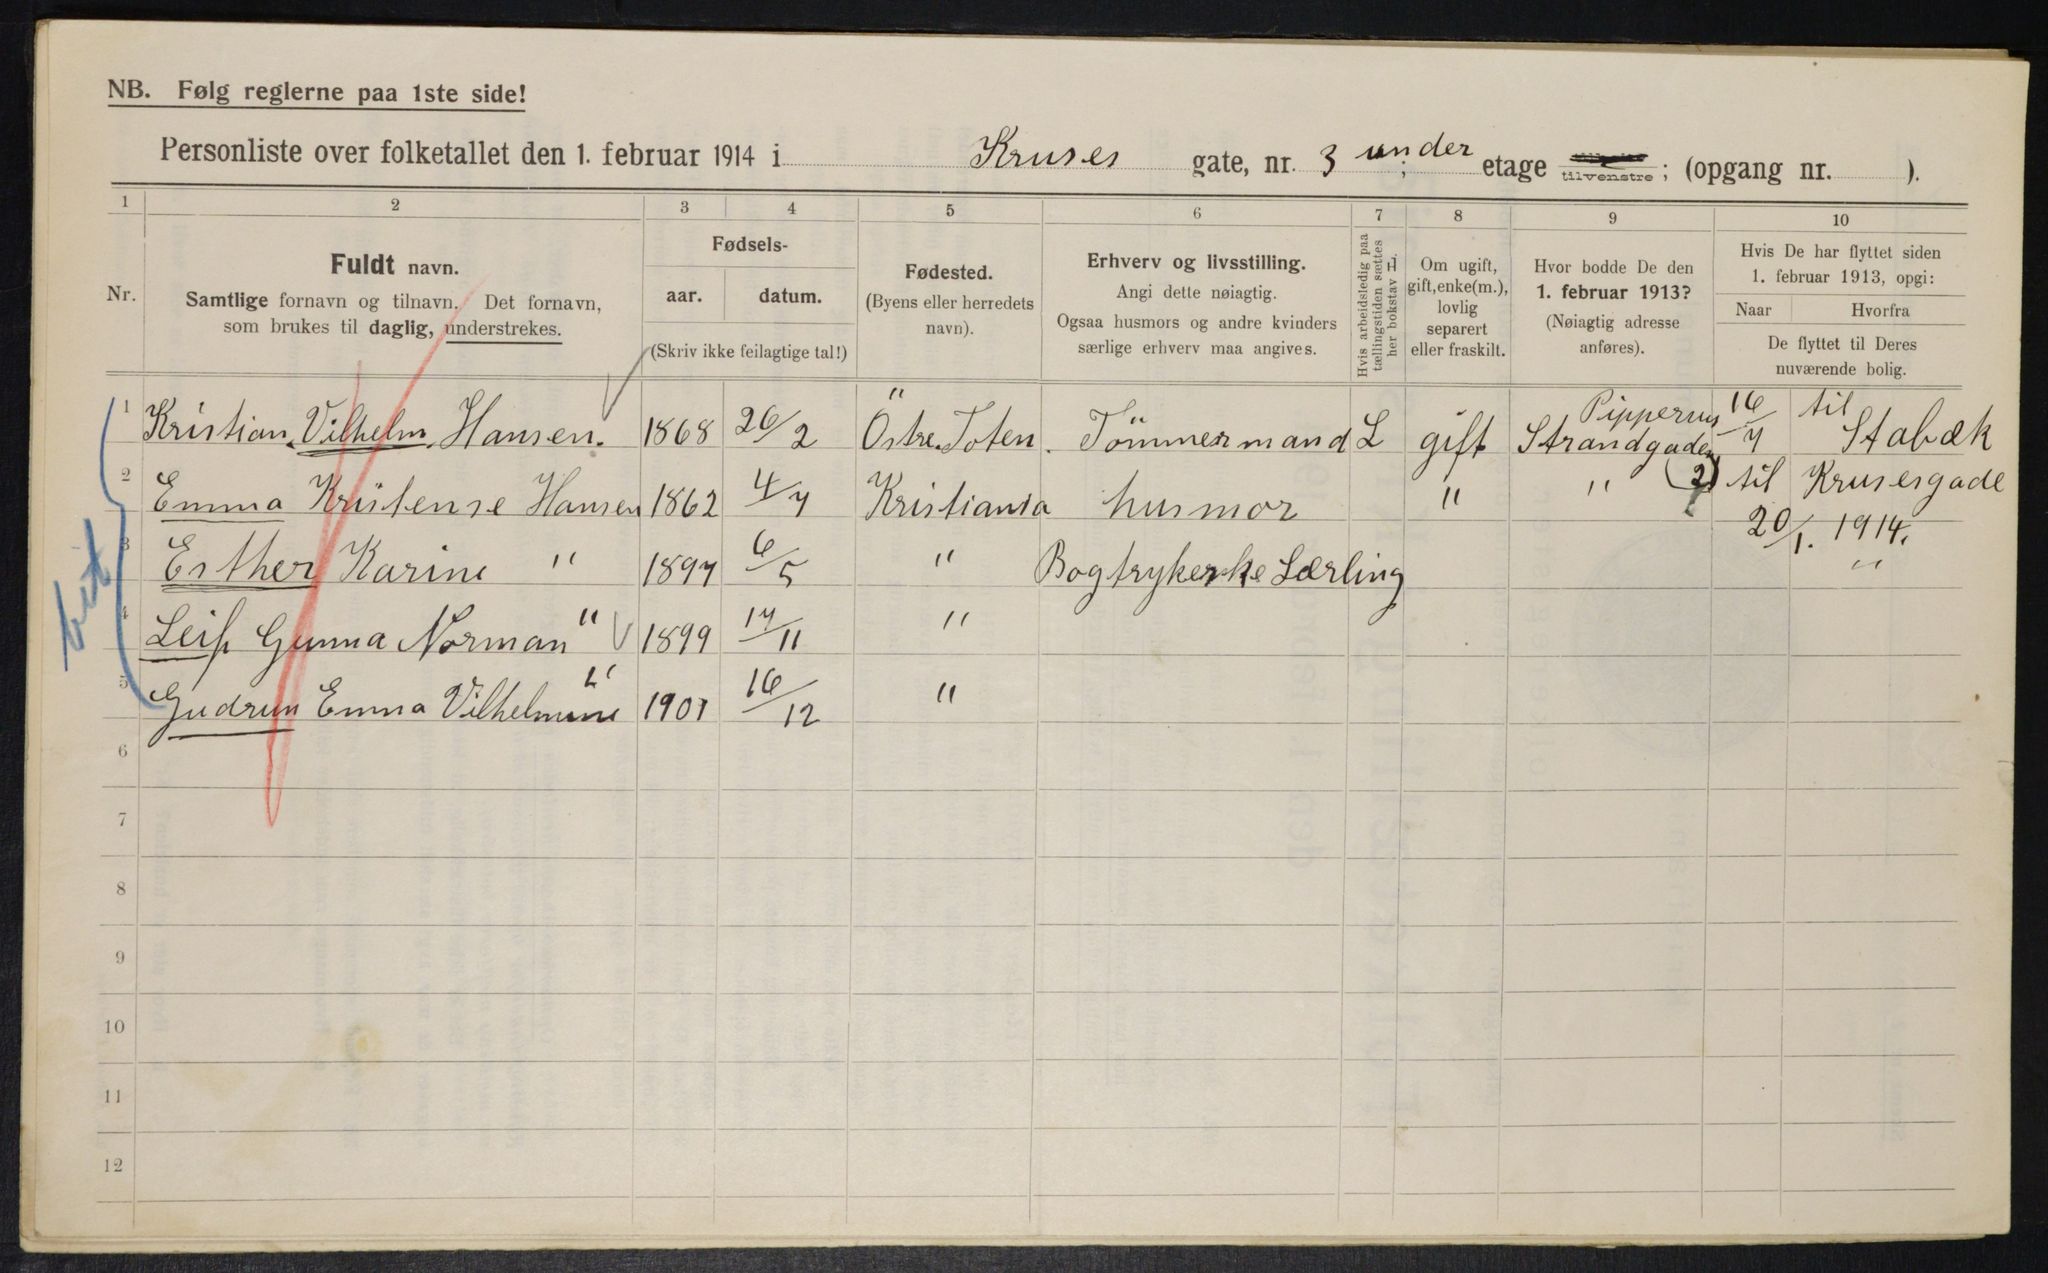 NB. Følg reglerne paa 1ste side!
Personliste over folketallet den 1. februar 1914 i Kruses gate, nr. 3 under etage tilvenstre; (opgang nr. ).
1 2 3 4 5 6 7 8 9 10
Nr.
Fuldt navn.
Samtlige fornavn og tilnavn. Det fornavn,
som brukes til daglig, understrekes.
Fødsels-
aar. datum.
(Skriv ikke feilagtige tal!)
Fødested.
(Byens eller herredets
navn).
Erhverv og livsstilling.
Angi dette nøiagtig.
Ogsaa husmors og andre kvinders
særlige erhverv maa angives.
Hvis arbeidsledig paa
tællingstiden sættes
her bokstav L.
Om ugift,
gift, enke(m.),
lovlig
separert
eller fraskilt.
Hvor bodde De den
1. februar 1913?
(Nøiagtig adresse
anføres).
Hvis De har flyttet siden
1. februar 1913, opgi:
Naar Hvorfra
De flyttet til Deres
nuværende bolig.
1 Kristian Vilhelm Hansen. 1868 26/2 Östre Toten. Tömmermand L gift Strandgaden 16/7 til Stabæk
2 Emma Kristense Hansen 1862 4/7 Kristiania husmor " " (2) til Krusesgade
20/1. 1914.
3 Esther Karine " 1897 6/5 " Bogtrykerke Lærling "
4 Leif Gunna Norman " 1899 17/11 "
5 Gudrun Emma Vilhelmine " 1901 16/12 "
6
7
8
9
10
11
12